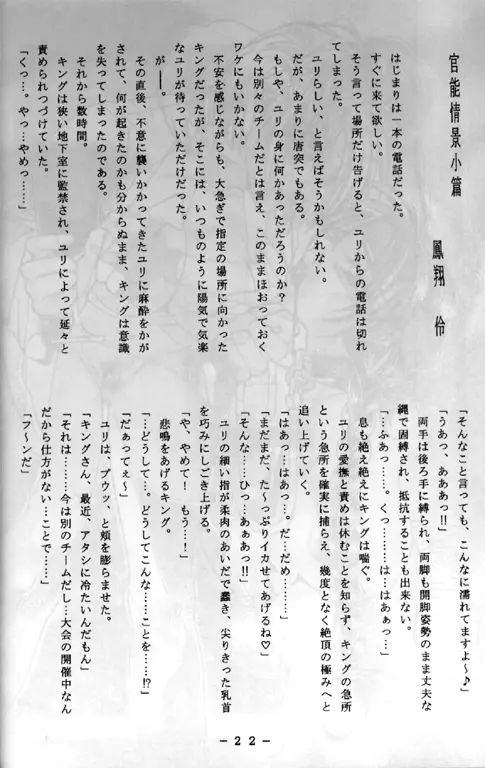 官能情景小篇
鳳翔 伶
はじまりは一本の電話だった。
すぐに来て欲しい。
そう言って場所だけ告げると、ユリからの電話は切れ
てしまった。
ユリらしい、と言えばそうかもしれない。
だが、あまりに唐突でもある。
もしや、ユリの身に何かあっただろうのか?
今は別々のチームだとは言え、このままほおっておく
ワケにもいかない。
不安を感じながらも、大急ぎで指定の場所に向かった
キングだったが、そこには、いつものように陽気で気楽
なユリが待っていただけだった。
が――。
その直後、不意に襲いかかってきたユリに麻酔をかが
されて、何が起きたのかも分からぬまま、キングは意識
を失ってしまったのである。
それから数時間。
キングは狭い地下室に監禁され、ユリによって延々と
責められつづけていた。
「くっ…。やっ…やめっ………」
「そんなこと言っても、こんなに濡れてますよ〜♪」
「うあっ、あああっ!!」
両手は後ろ手に縛られ、両脚も開脚姿勢のまま丈夫な
縄で固縛され、抵抗することも出来ない。
「…ふあっ…。くっ………は…はあぁっ…」
息も絶え絶えにキングは喘ぐ。
ユリの愛撫と責めは休むことを知らず、キングの急所
という急所を確実に捕らえ、幾度となく絶頂の極みへと
追い上げていく。
「はあっ…はあっ…。だ…だめ………」
「まだまだ、た〜っぷりイカせてあげるね♡」
「そんな……ひっ…あぁあっ!!」
ユリの細い指が柔肉のあいだで蠢き、尖りきった乳首
を巧みにしごき上げる。
「や、やめて! もう…!」
悲鳴をあげるキング。
「…どうして…。どうしてこんな……ことを……!?」
「だぁってぇ〜」
ユリは、プウッ、と頬を膨らませた。
「キングさん、最近、アタシに冷たいんだもん」
「それは………今は別のチームだし…大会の開催中なん
だから仕方がない…ことで……」
「フ〜ンだ」
－22－